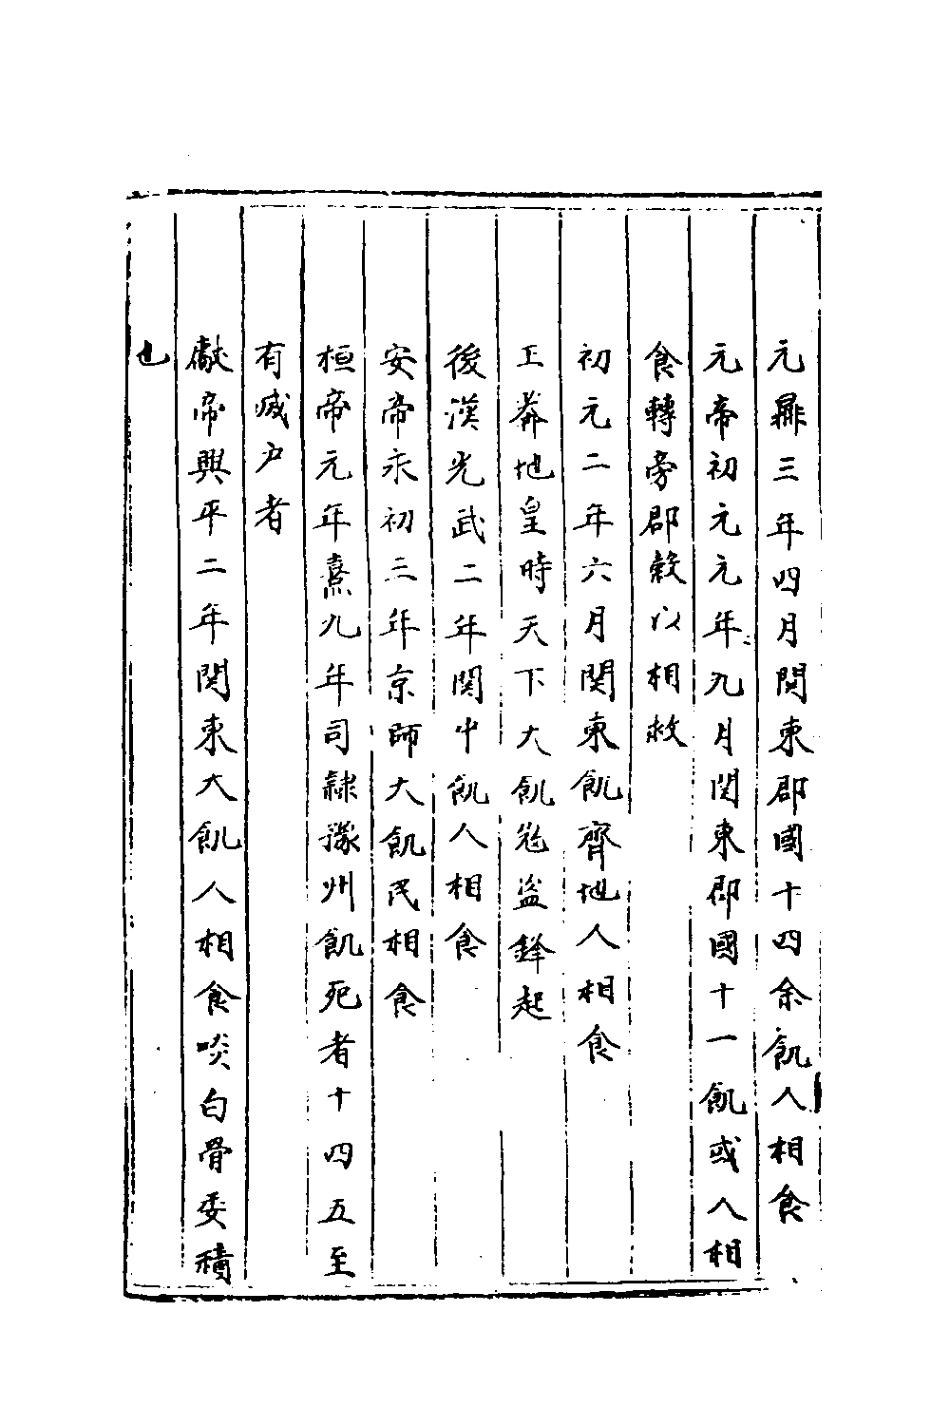 元鼎三年四月関東郡國十四余飢人相食
元帝初元元年九月関東郡國十一飢或人相
食轉旁郡穀以相救
初元二年六月関東飢齊地人相食
王莽地皇時天下大飢冦盜鋒起
後漢光武二年関中飢人相食
安帝永初三年京師大飢民相食
桓帝元年熹九年司隸豫州飢死者十四五至
有滅户者
獻帝興平二年関東大飢人相食啖白骨委積
也